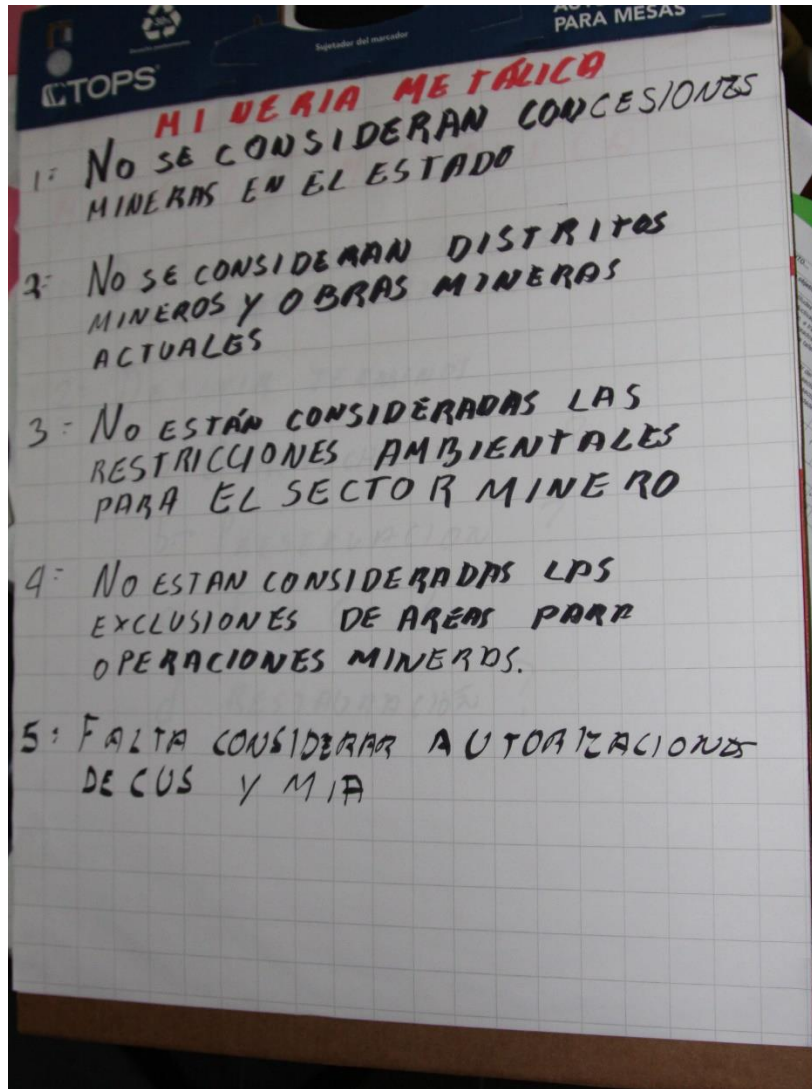 PARA MESAS
Sujetador del marcador
TOPS
MINERIA METÁLICA
1: NO SE CONSIDERAN CONCESIONES
MINERAS EN EL ESTADO
2: NO SE CONSIDERAN DISTRITOS
MINEROS Y OBRAS MINERAS
ACTUALES
3: NO ESTÁN CONSIDERADAS LAS
RESTRICCIONES AMBIENTALES
PARA EL SECTOR MINERO
4: NO ESTAN CONSIDERADAS LAS
EXCLUSIONES DE AREAS PARA
OPERACIONES MINEROS.
5: FALTA CONSIDERAR AUTORIZACIONES
DE CUS Y MIA